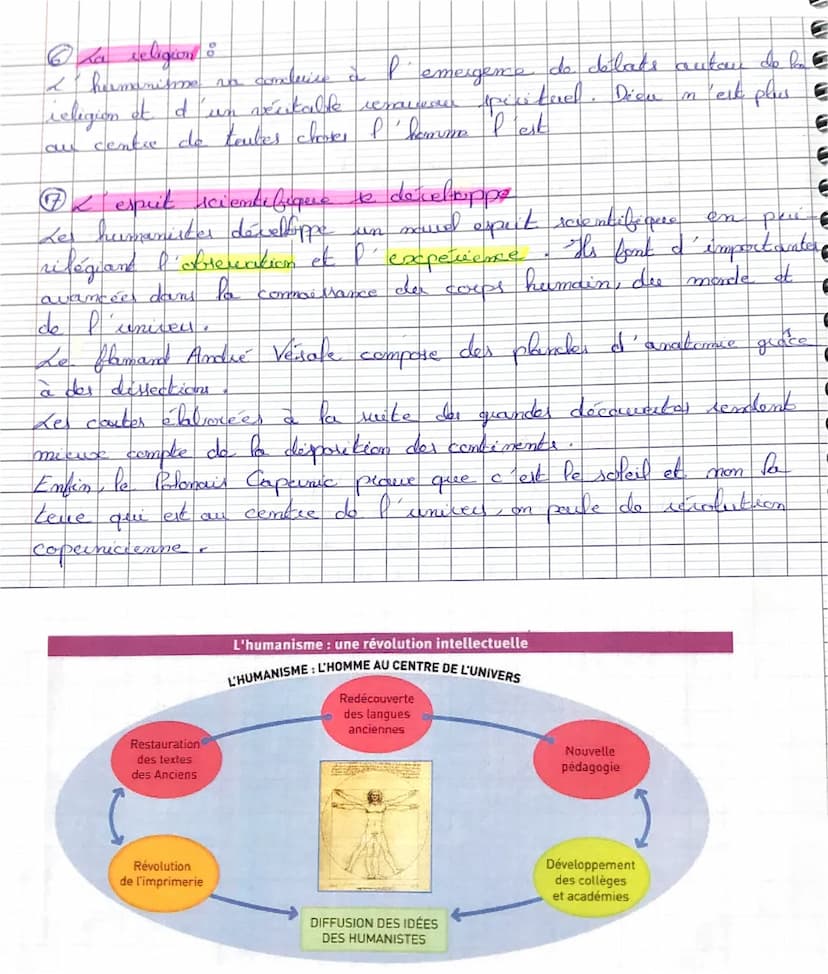 ⑥ La religion :
L'humanisme va conduire à l'émergence de débats autour de la
religion et d'un véritable renouveau spirituel. Dieu n'est plus
au centre de toutes choses l'homme l'est
⑦ L'esprit scientifique se développe
Les humanistes développe un nouvel esprit scientifique en privi-
rilégiant l'observation et l'expérience. Ils font d'importantes
avancées dans la connaissance du corps humain, du monde et
de l'univers.
Le flamand André Vésale compose des planches d'anatomie grâce
à des dissections.
Les cartes élaborées à la suite des grandes découvertes rendent
mieux compte de la disposition des continents.
Enfin, le Polonais Copernic prouve que c'est le soleil et non la
terre qui est au centre de l'univers, on parle de révolution
copernicienne.
L'humanisme : une révolution intellectuelle
L'HUMANISME : L'HOMME AU CENTRE DE L'UNIVERS
Redécouverte
des langues
anciennes
Restauration
des textes
des Anciens
Nouvelle
pédagogie
Révolution
de l'imprimerie
Développement
des collèges
et académies
DIFFUSION DES IDÉES
DES HUMANISTES